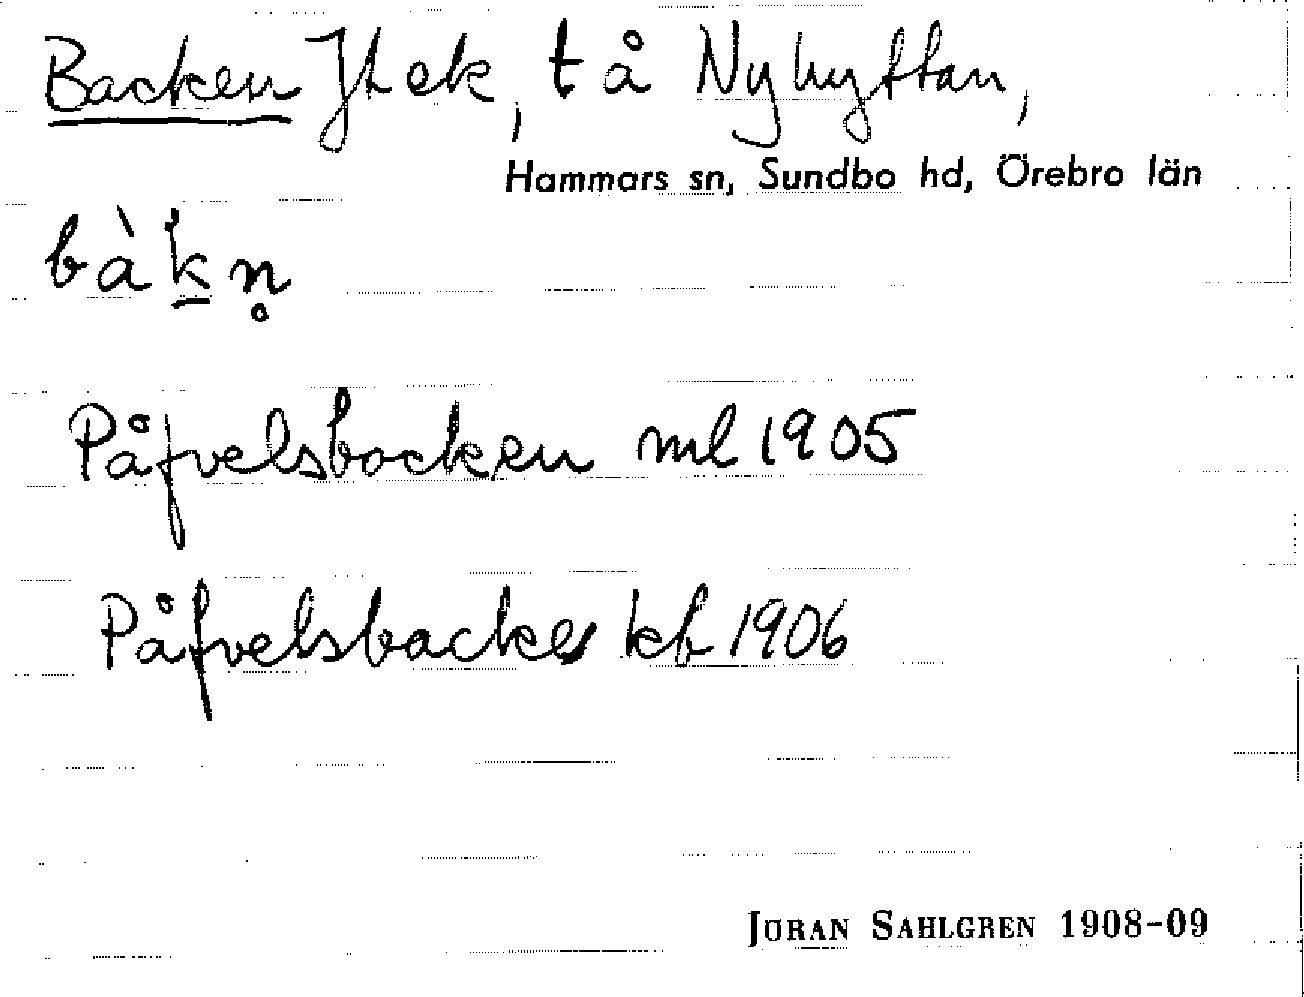 Backen Jt ek, t å Nyhyttan,
Hammars sn, Sundbo hd, Örebro län
bàk̲n̥
Påfvelsbacken ml 1905
Påfvelsbacke kb 1906
JÖRAN SAHLGREN 1908-09